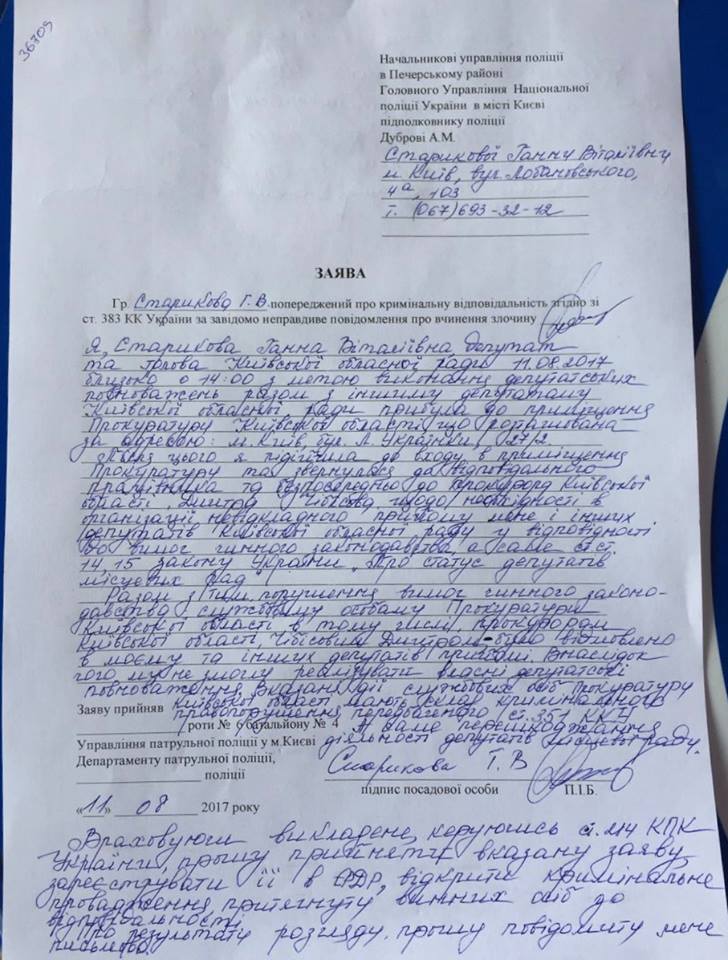 36709
Начальникові управління поліції
в Печерському районі
Головного Управління Національної
поліції України в місті Києві
підполковнику поліції
Дуброві А.М.
Старикової Ганни Віталіївни
м. Київ, вул. Лобановського,
4а, 103
т. (067) 693-32-12
ЗАЯВА
Гр. Старикова Г.В попереджений про кримінальну відповідальність згідно зі
ст. 383 КК України за завідомо неправдиве повідомлення про вчинення злочину
Я, Старикова Ганна Віталіївна депутат
та голова Київської обласної ради 11.08.2017
близько о 14:00 з метою виконання депутатських
повноважень разом з іншими депутатами
Київської обласної ради прибула до приміщення
Прокуратури Київської області що розташована
за адресою: м. Київ, бул. Л. Українки, 27/2
Після цього я підійшла до входу в приміщення
Прокуратури та звернулася до відповідального
працівника та безпосередньо до прокурора Київської
області Дмитра Чибісова щодо необхідності в
організації невідкладного прийому мене і інших
депутатів Київської обласної ради у відповідності
до вимог чинного законодавства, а саме ст.ст.
14, 15 закону України „Про статус депутатів
місцевих рад"
Разом з тим, порушення вимог чинного законо-
давства службовими особами Прокуратури
Київської області в тому числі прокурором
Київської області Чібісовим Дмитром було відмовлено
в моєму та інших депутатів прийомі. Внаслідок
чого ми не змогли реалізувати власні депутатські
повноваження. Вказані дії службових осіб Прокуратури
Київської області мають склад кримінального
правопорушення передбаченого ст. 351 ККУ
а саме перешкоджання
діяльності депутата місцевої ради.
Заяву прийняв
роти № 6 батальйону № 4
Управління патрульної поліції у м.Києві
Департаменту патрульної поліції,
поліції
Старикова Г.В
підпис посадової особи П.І.Б.
«11» 08 2017 року
Враховуючи викладене, керуючись ст. 214 КПК
України, прошу прийняти вказану заяву
зареєструвати її в ЄРДР, відкрити кримінальне
провадження, притягнути винних осіб до
відповідальності.
Про результати розгляду, прошу повідомити мене
письмово.